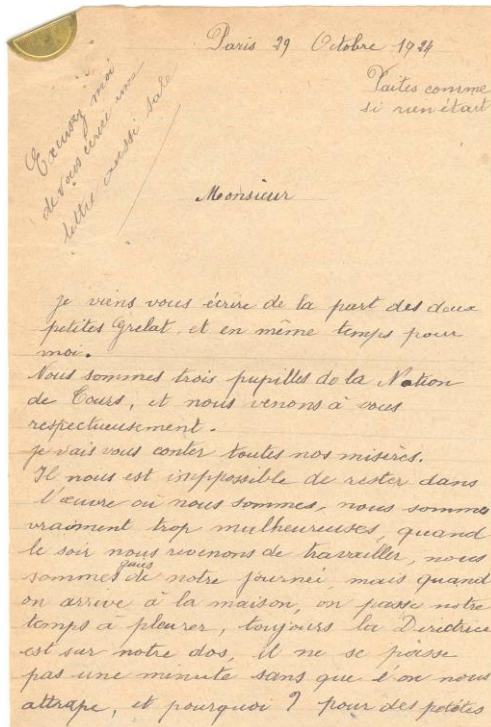 Paris 29 Octobre 1924
Faites comme
si rien était
Excusez moi
de vous écrire une
lettre aussi sale
Monsieur
je viens vous écrire de la part des deux
petites Grelat, et en même temps pour
moi.
Nous sommes trois pupilles de la Nation
de Tours, et nous venons à vous
respectueusement.
je vais vous conter toutes nos misères.
Il nous est impossible de rester dans
l'œuvre où nous sommes, nous sommes
vraiment trop malheureuses, quand
le soir nous revenons de travailler, nous
sommes gais de notre journei, mais quand
on arrive à la maison, on passe notre
temps à pleurer, toujours la Directrice
est sur notre dos, il ne se passe
pas une minute sans que l'on nous
attrape, et pourquoi ? pour des petites